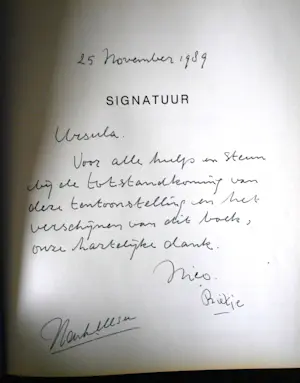 25 November 1989
SIGNATUUR
Ursula.
Voor alle hulp en steun
bij de totstandkoming van
deze tentoonstelling en het
verschijnen van dit boek,
onze hartelijke dank.
Nico.